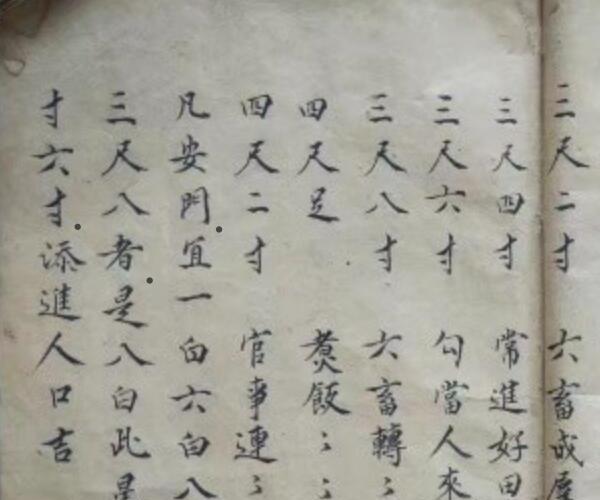 三尺二寸 六畜成
三尺四寸 常進好田
三尺六寸 勾當人來
三尺八寸 六畜轉〻
四尺足 煑飯〻〻
四尺二寸 官事連〻
凡安門宜一白六白八
三尺八者是八白此是
寸六寸添進人口吉